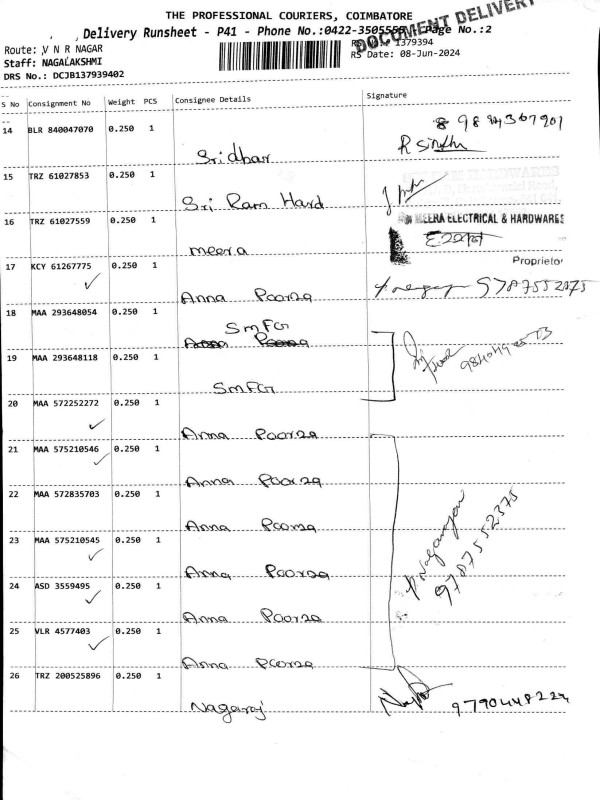 THE PROFESSIONAL COURIERS, COIMBATORE
DOCUMENT DELIVERY
Delivery Runsheet - P41 - Phone No:0422-3505555 Page No.:2
Route: V N R NAGAR
1379394
Staff: NAGALAKSHMI
RS Date: 08-Jun-2024
DRS No.: DCJB137939402
S No Consignment No Weight PCS Consignee Details Signature
14 BLR 840047070 0.250 1
Sridhar
15 TRZ 61027853 0.250 1
Sri Ram Hard
16 TRZ 61027559 0.250 1 MEERA ELECTRICAL & HARDWARES
meera
Proprietor
17 KCY 61267775 0.250 1
Anna Poorza 9787552375
18 MAA 293648054 0.250 1
SMFG
19 MAA 293648118 0.250 1
SMFG
20 MAA 572252272 0.250 1
Anna Poorza
21 MAA 575210546 0.250 1
Anna Poorza
22 MAA 572835703 0.250 1
Anna Poorza
23 MAA 575210545 0.250 1
Anna Poorza
Nagarajan
9787552375
24 ASD 3559495 0.250 1
Anna Poorza
25 VLR 4577403 0.250 1
Anna Poorza
26 TRZ 200525896 0.250 1
Nagaraj 9790448224